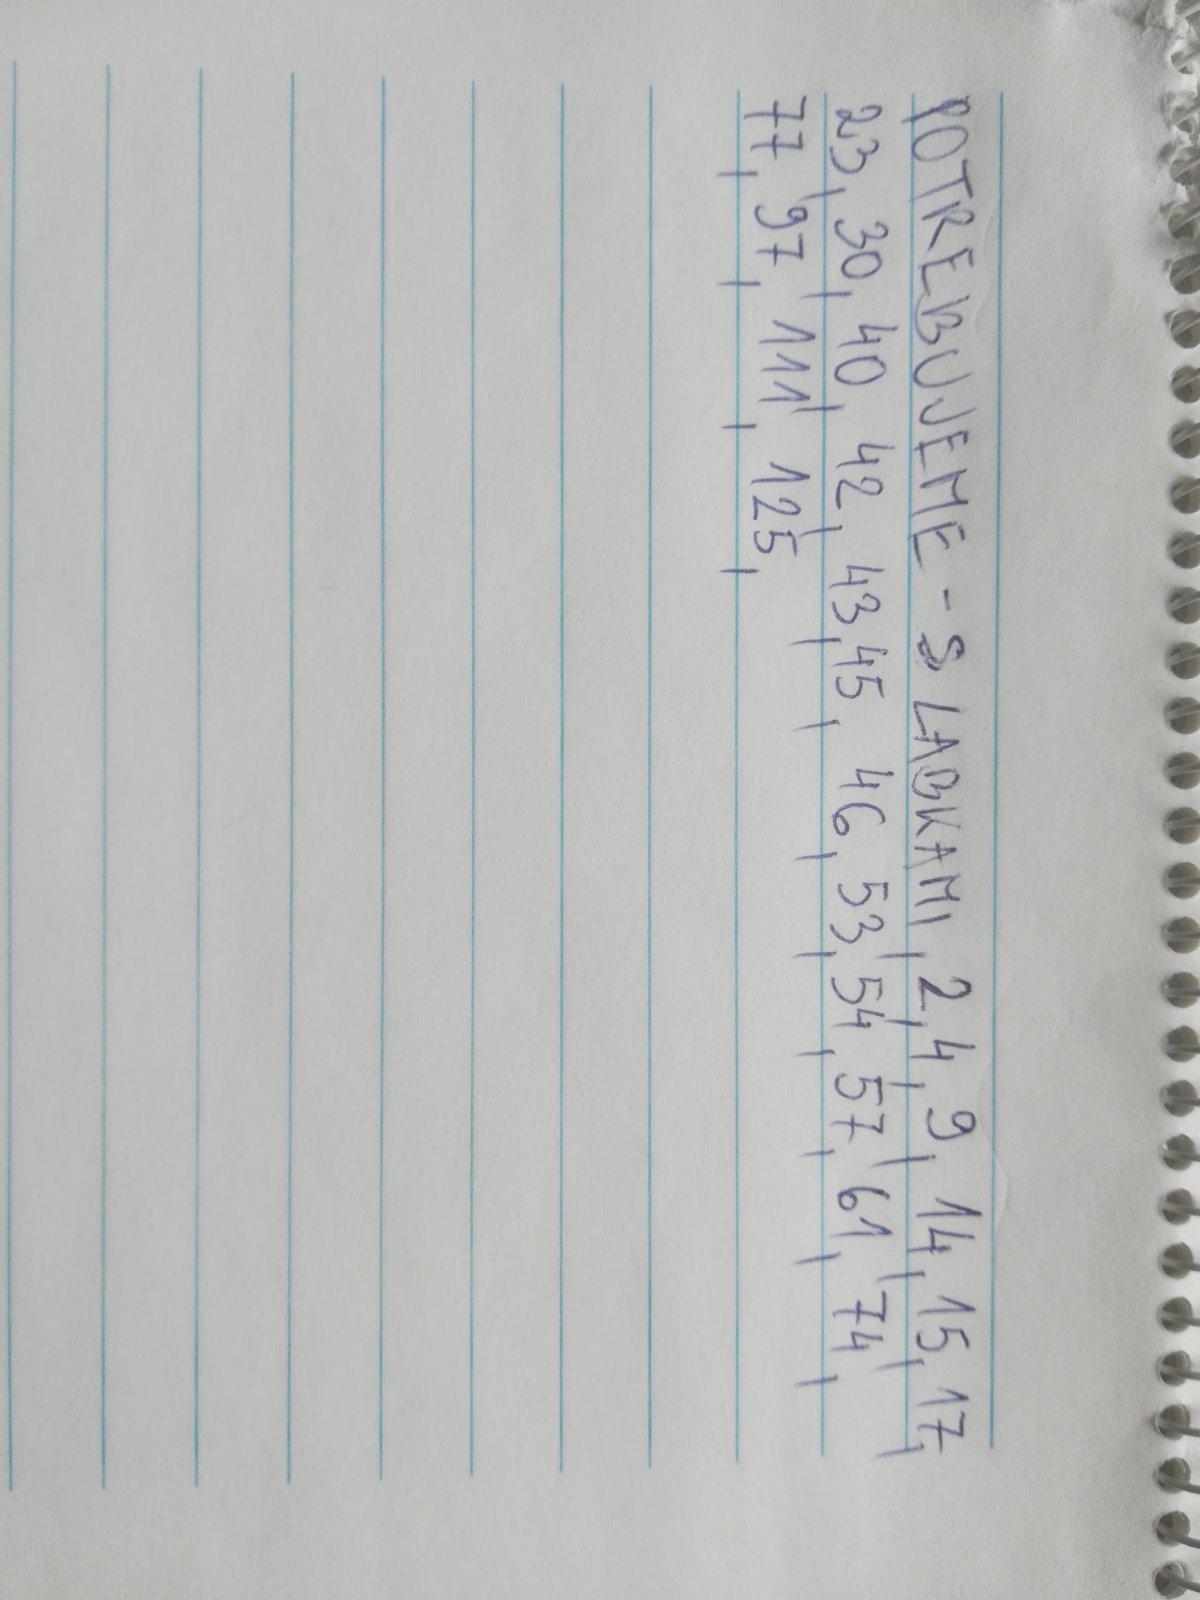 POTREBUJEME - S LABKAMI, 2, 4, 9, 14, 15, 17,
23, 30, 40, 42, 43, 45, 46, 53, 54, 57, 61, 74,
77, 97, 111, 125,